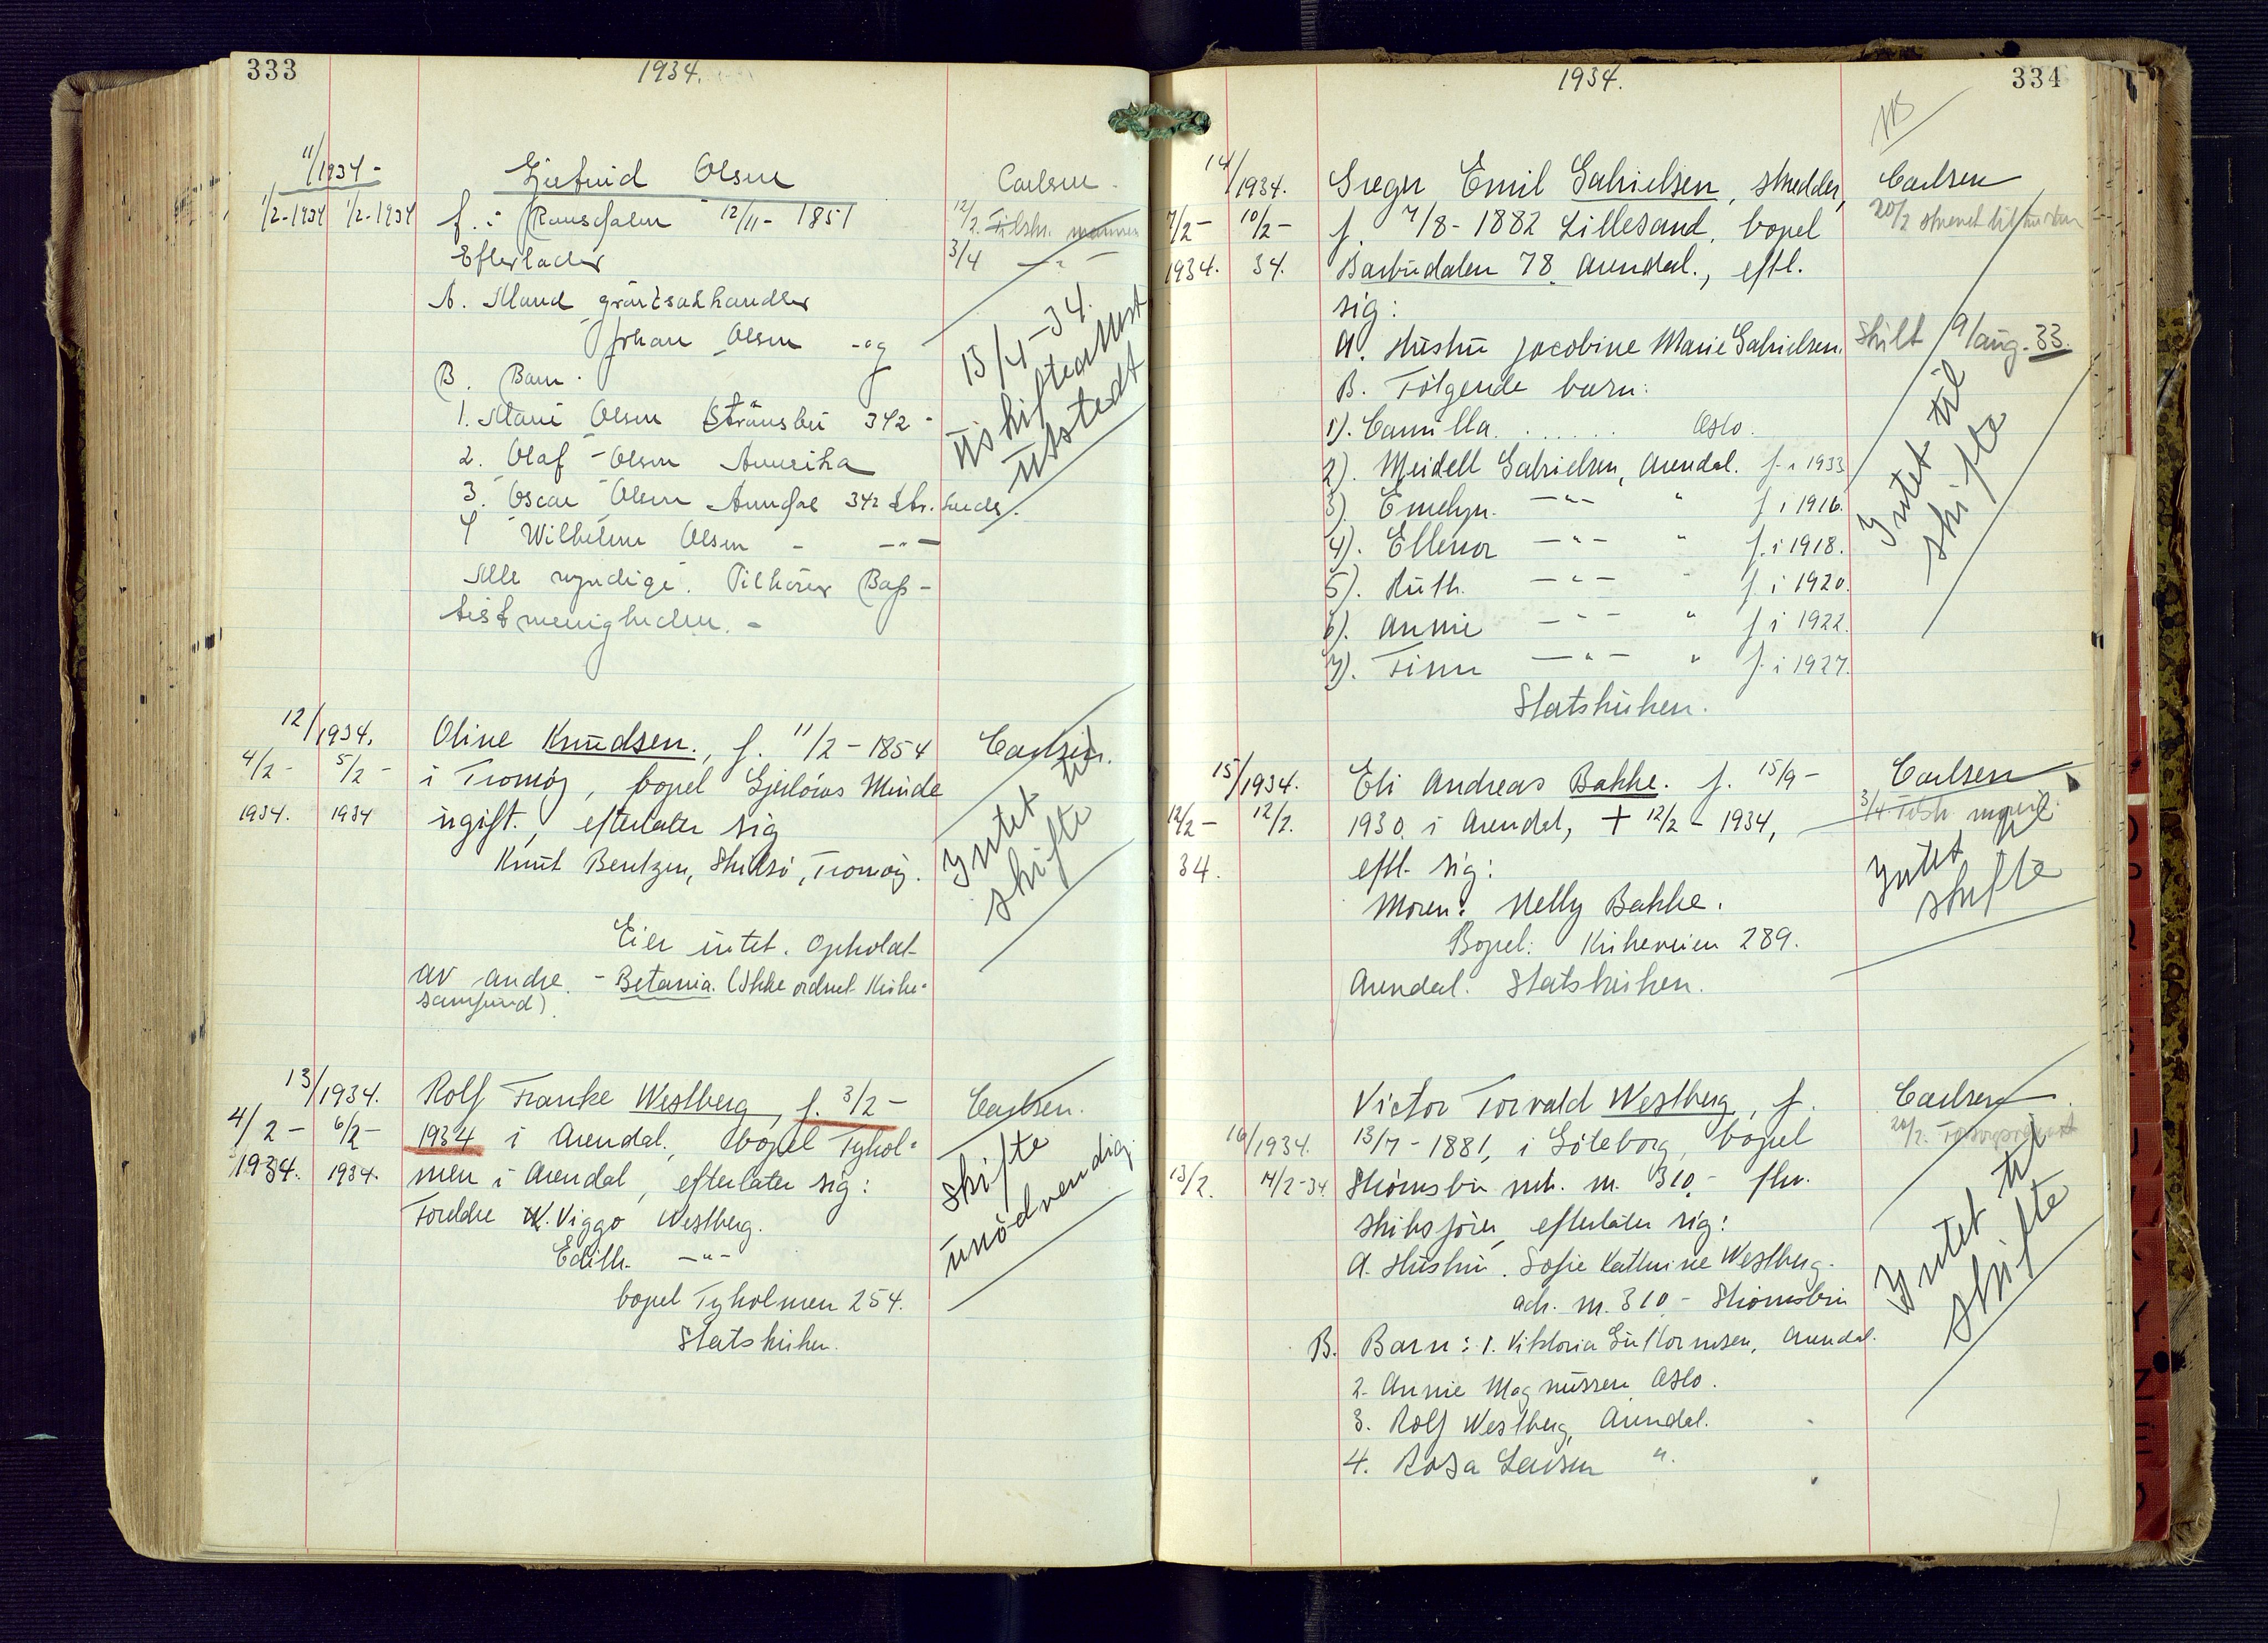 333
1934.
11/1934 -
1/2-1934 1/2-1934
Olsen
Carlsen.
f. i Ramsdalen 12/11 - 1851
12/2. Tilskr. mannen
Efterlader
3/4 — " —
A. Mand grøntsakhandler
Johan Olsen - og
B. Barn.
1. Marie Olsen Strømsbu 342 -
2. Olaf - Olsen Amerika
3. Oscar Olsen Arendal 342 Str.
4 Wilhelm Olsen - - " -
Alle myndige. Tilhører Bap-
tistmenigheden. -
13/4 - 34.
Uskifteattest
utstedt
12/1934.
4/2 - 5/2 -
1934. 1934
Oline Knudsen., f. 11/2 - 1854
Carlsen.
i Tromøy, bopel Gjerløws Minde
ugift., efterlater sig
Knut Bentzen, Skilsø, Tromøy.
Intet til
skifte
Eier intet. Opholdt
av andre. - Betania. (Ikke ordnet Kirke-
samfund).
13/1934.
4/2 - 6/2 -
1934. 1934.
Rolf Franke Westberg, f. 3/2 -
Carlsen.
1934 i Arendal., bopel Tyhol-
men i Arendal, efterlater sig:
Foreldre K. Viggo Westberg.
Edith. - " -
bopel Tyholmen 254.
Statskirken.
Skifte
unødvendig.
334
1934.
NB
14/1934.
7/2 - 10/2 -
1934. 34.
Gregn Emil Gabrielsen, skredder,
Carlsen
f. 7/8 - 1882 Lillesand, bopel
20/2 skrevet til hustru
Barbudalen 78. Arendal., eftl.
sig:
A. Hustru Jacobine Marie Gabrielsen.
Skilt 9/aug. 33.
B. Følgende barn:
1). Camilla. . . . . . . Oslo.
2). Meidell Gabrielsen, Arendal. f. i 1933
3). Emelyn. — " — " f i 1916.
4). Ellenor — " — " f. i 1918.
5). Ruth. — " — " f. i 1920.
6). Annie — " — " f i 1922.
7). Finn — " — " f. i 1927.
Statskirken.
Intet til
skifte
15/1934.
12/2 - 12/2.
34.
Eli Andreas Bakke. f. 15/9 -
Carlsen
1930. i Arendal, + 12/2 - 1934,
3/4 Tilskr.
eftl. sig:
Moren: Nelly Bakke.
Bopel: Kirkeveien 289.
Arendal. Statskirken.
Intet
skifte
16/1934.
13/2. 14/2-34.
Victor Torvald Westberg, f.
Carlsen.
13/7 - 1881, i Göteborg, bopel
Strømsbu mtr. m. 310. - fhv.
skibsfører, efterlater sig:
A. Hustru. Sofie Kathrine Westberg.
adr. m. 310 - Strømsbu
B. Barn: 1. Viktoria Guttormsen, Arendal.
2. Annie Magnussen Oslo.
3. Rolf Westberg, Arendal.
4. Rosa Larsen ".
Intet til
skifte